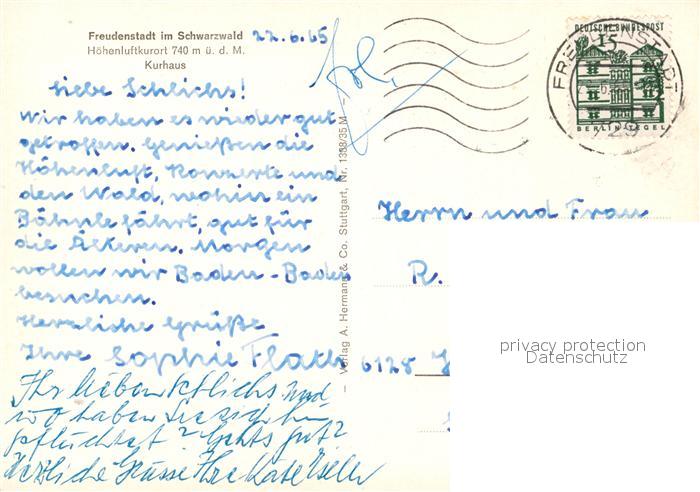 Freudenstadt im Schwarzwald
Höhenluftkurort 740 m ü. d. M.
Kurhaus
22.6.65
Liebe Schlichs!
Wir haben es wieder gut
getroffen. Genießen die
Höhenluft, Konzerte und
den Wald, wohin ein
Bähnle fährt, gut für
die Älteren. Morgen
wollen wir Baden-Baden
besuchen.
Herzliche Grüße
Ihre Sophie Flath
Ihr lieben Schlichs und
wo haben Sie sich hin
geflüchtet? Gehts gut?
Herzliche Grüsse Ihre
Verlag A. Hermann & Co. Stuttgart, Nr. 1358/35 M
DEUTSCHE BUNDESPOST
15
BERLIN-TEGEL
FREUDENSTADT
Herrn und Frau
R.
6128
privacy protection
Datenschutz